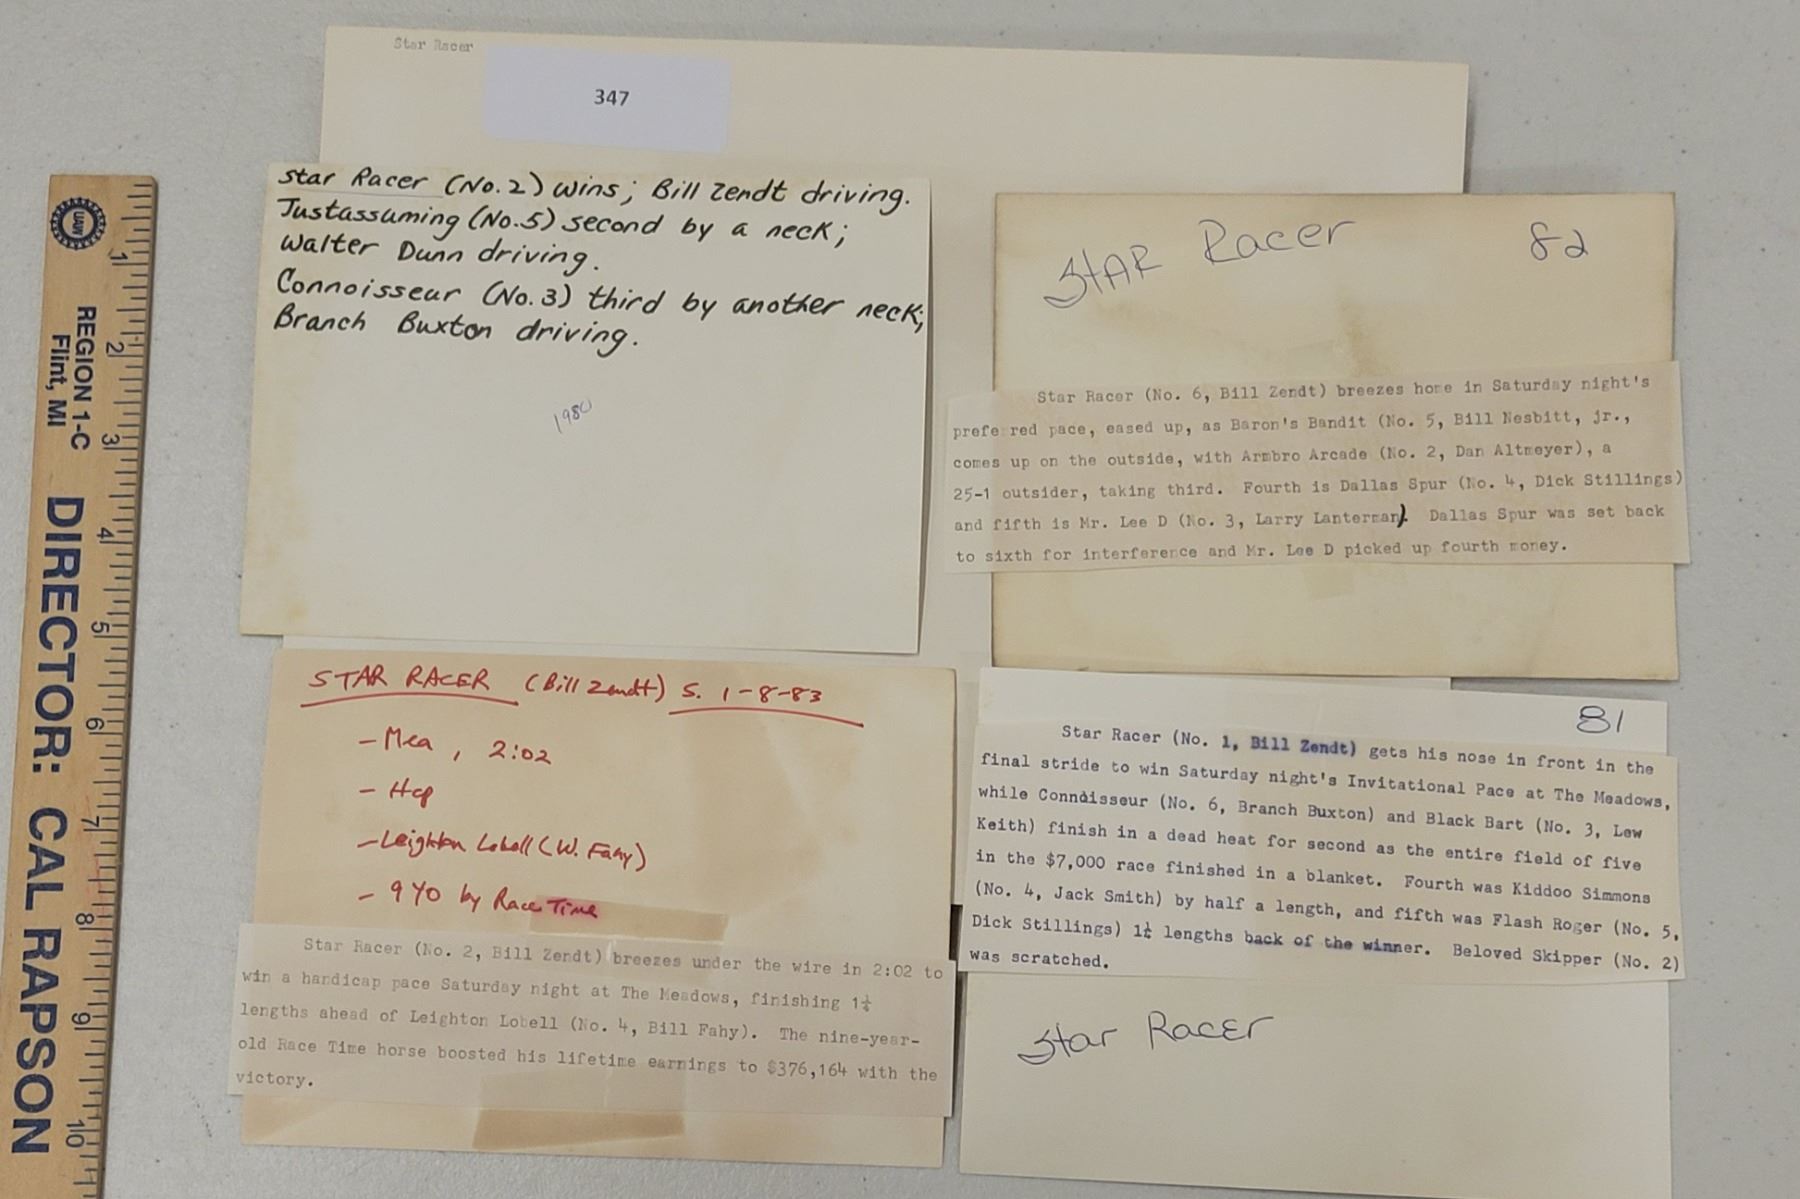 Star Racer
347
Star Racer (No. 2) wins; Bill Zendt driving.
Justassuming (No. 5) second by a neck;
Walter Dunn driving.
Connoisseur (No. 3) third by another neck;
Branch Buxton driving.
1980
STAR Racer 82
Star Racer (No. 6, Bill Zendt) breezes home in Saturday night's
prefe red pace, eased up, as Baron's Bandit (No. 5, Bill Nesbitt, jr.,
comes up on the outside, with Armbro Arcade (No. 2, Dan Altmeyer), a
25-1 outsider, taking third. Fourth is Dallas Spur (No. 4, Dick Stillings)
and fifth is Mr. Lee D (No. 3, Larry Lanterman). Dallas Spur was set back
to sixth for interference and Mr. Lee D picked up fourth money.
STAR RACER (Bill Zendt) S. 1-8-83
- Mea, 2:02
- Hcp
- Leighton Lobell (W. Fahy)
- 9 YO by Race Time
Star Racer (No. 2, Bill Zendt) breezes under the wire in 2:02 to
win a handicap pace Saturday night at The Meadows, finishing 1¼
lengths ahead of Leighton Lobell (No. 4, Bill Fahy). The nine-year-
old Race Time horse boosted his lifetime earnings to $376,164 with the
victory.
81
Star Racer (No. 1, Bill Zendt) gets his nose in front in the
final stride to win Saturday night's Invitational Pace at The Meadows,
while Connoisseur (No. 6, Branch Buxton) and Black Bart (No. 3, Lew
Keith) finish in a dead heat for second as the entire field of five
in the $7,000 race finished in a blanket. Fourth was Kiddoo Simmons
(No. 4, Jack Smith) by half a length, and fifth was Flash Roger (No. 5,
Dick Stillings) 1¼ lengths back of the winner. Beloved Skipper (No. 2)
was scratched.
Star Racer
UAW
REGION 1-C
Flint, MI
DIRECTOR: CAL RAPSON
1 2 3 4 5 6 7 8 9 10